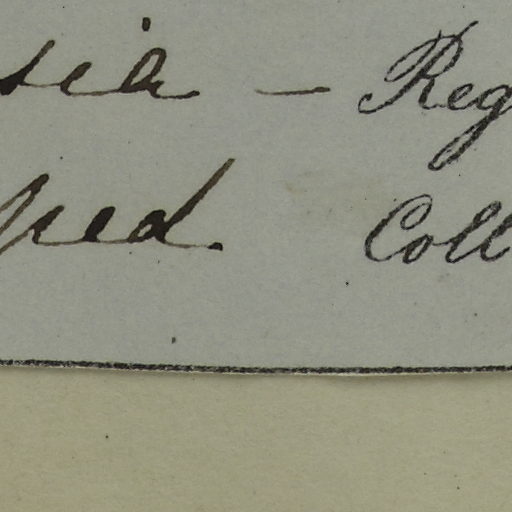 sia — Reg
ped. Coll